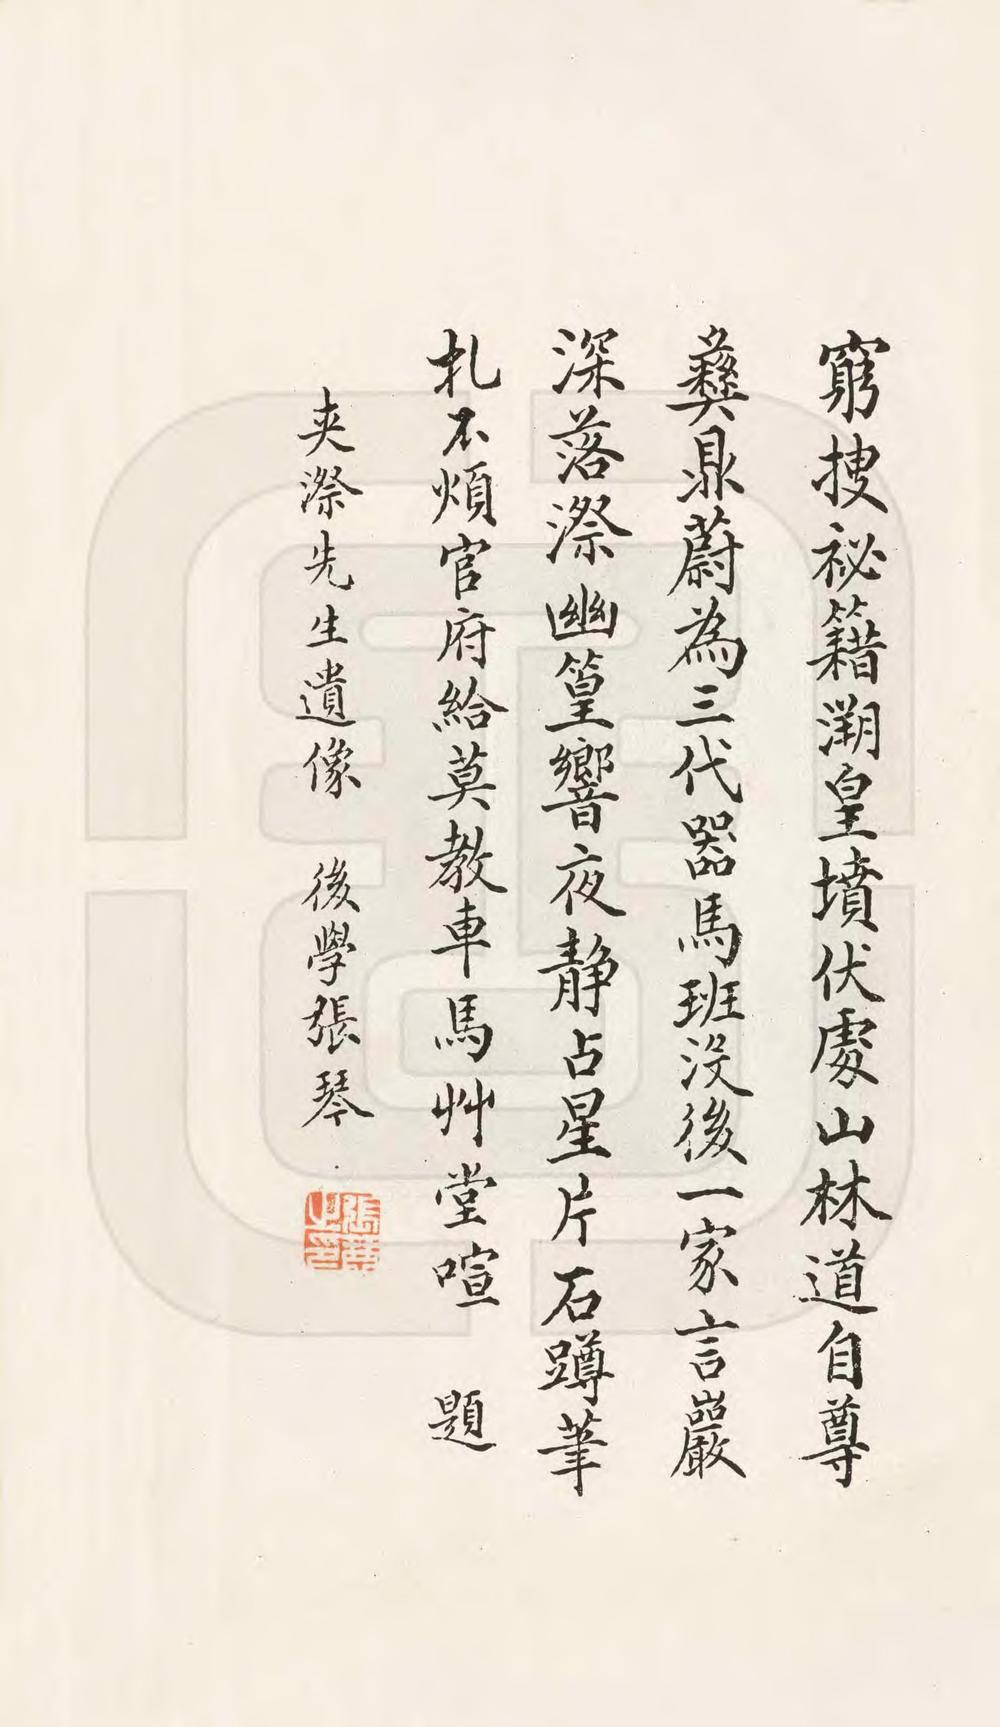 窮搜祕籍溯皇墳伏處山林道自尊
彝鼎蔚為三代器馬班没後一家言巖
深落漈幽篁響夜靜占星片石蹲筆
札不煩官府給莫教車馬艸堂喧 題
夾漈先生遺像 後學張琴
張琴之印